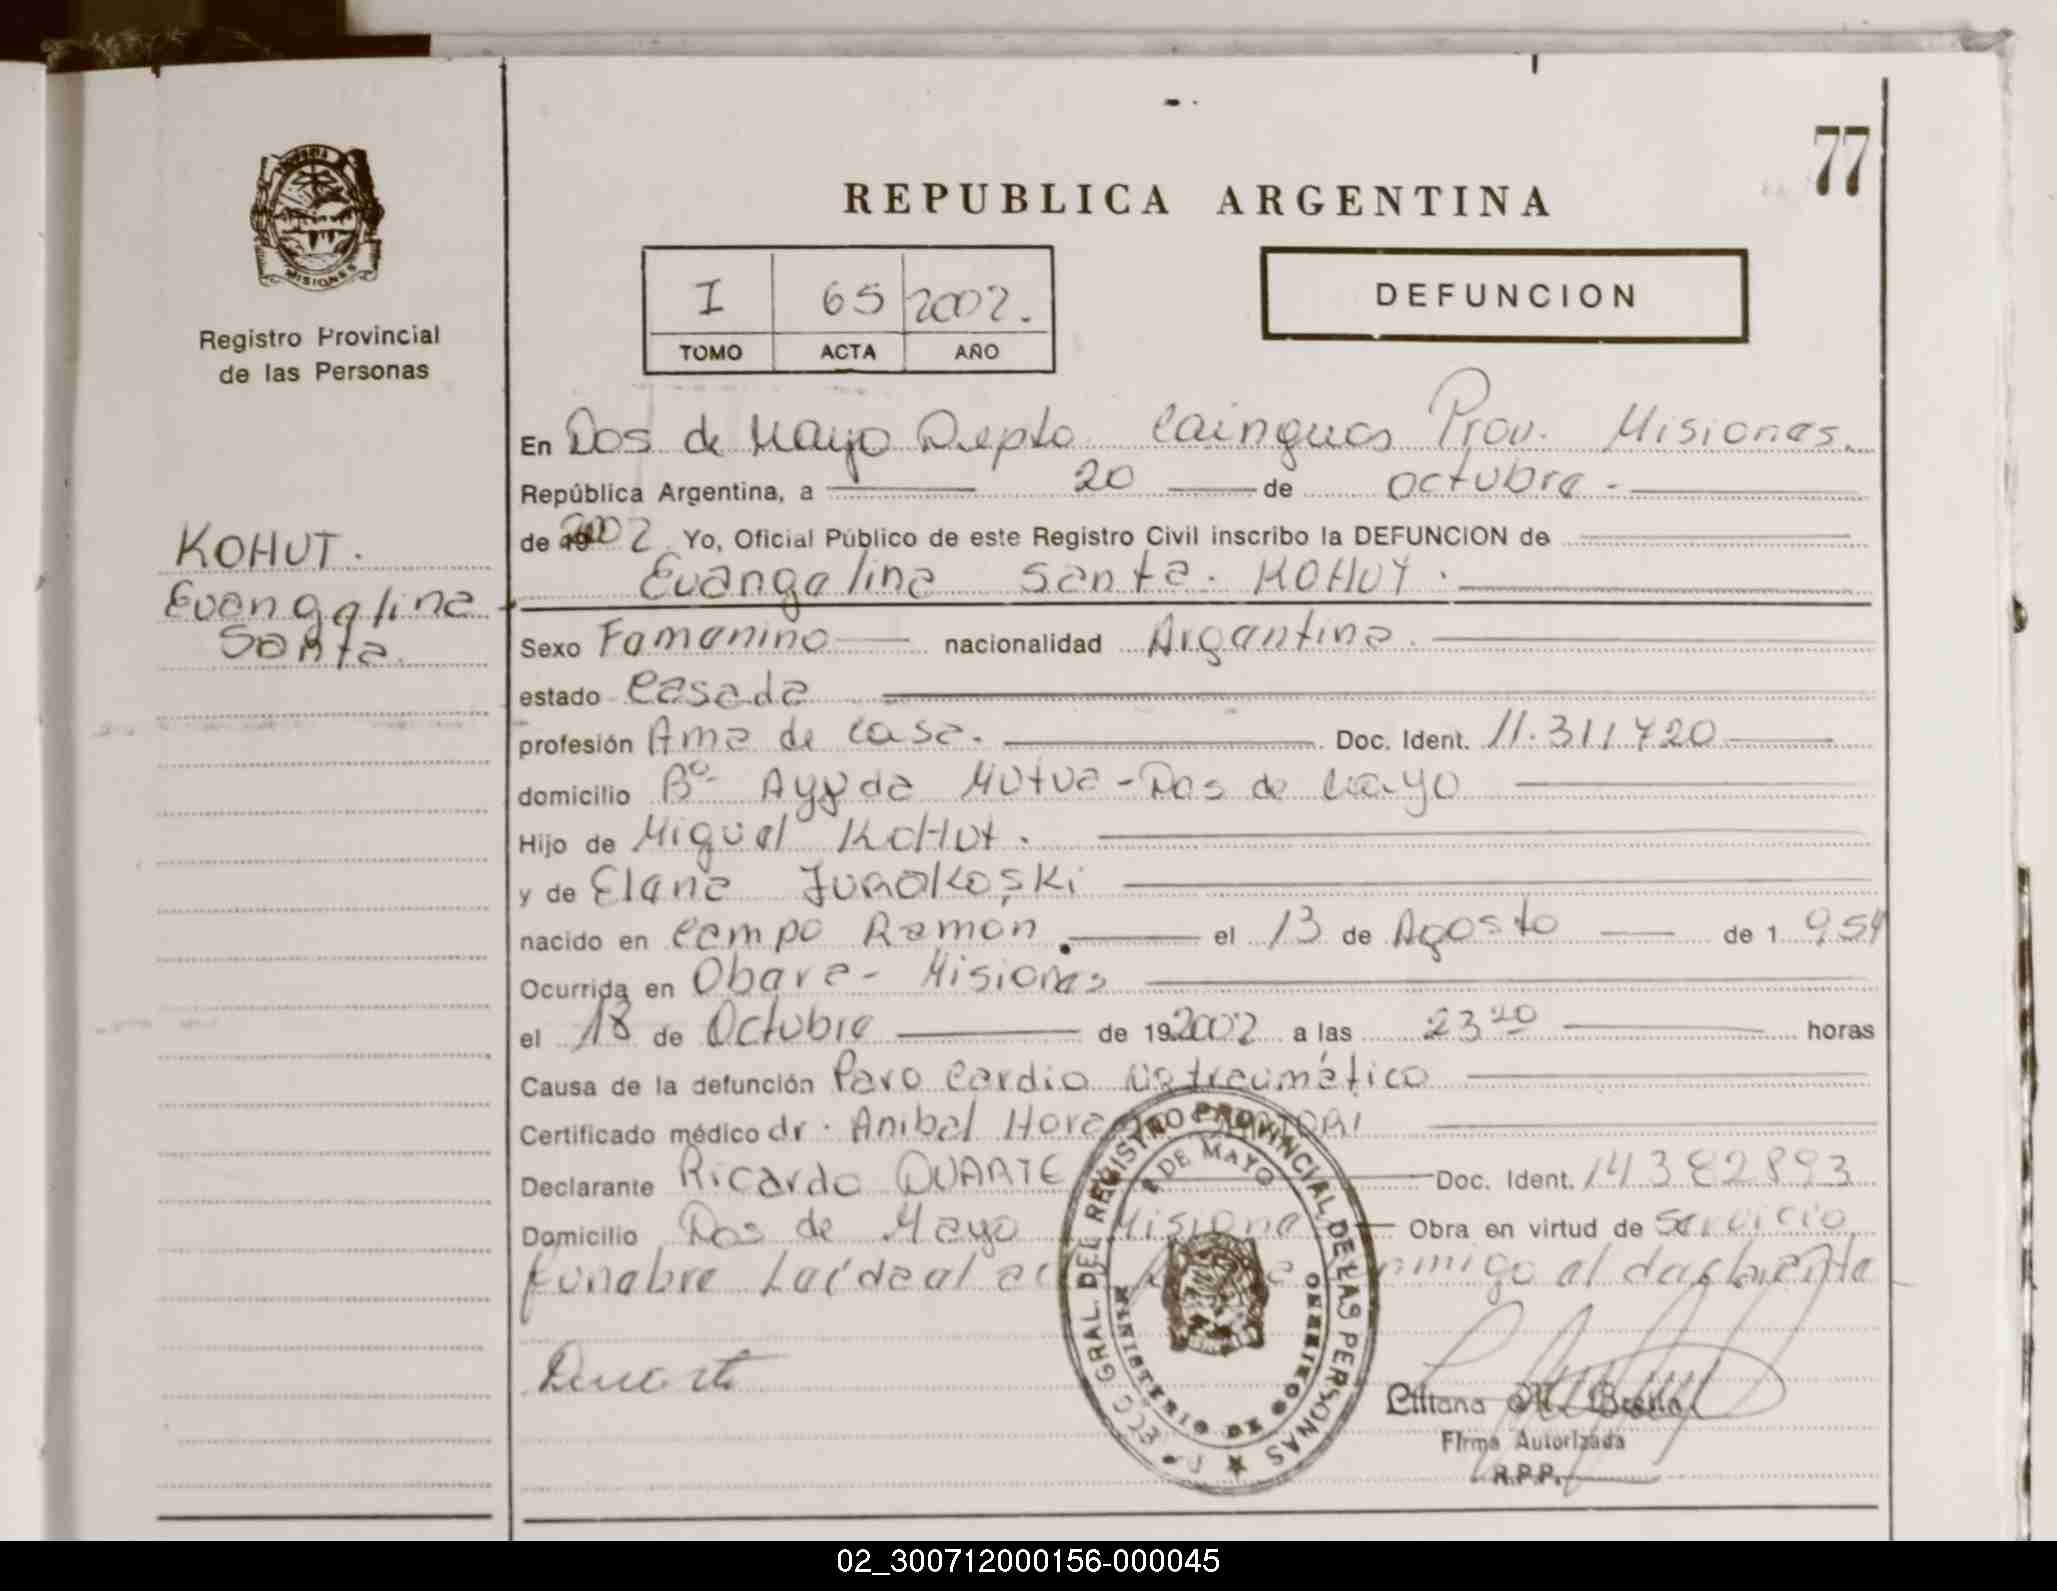 77
REPUBLICA ARGENTINA
MISIONES
Registro Provincial
de las Personas
I 65 2002.
TOMO ACTA AÑO
DEFUNCION
KOHUT.
Evangelina
Santa.
En Dos de Mayo Depto Cainguas Prov. Misiones.
República Argentina, a 20 de octubre.
de 2002 Yo, Oficial Público de este Registro Civil inscribo la DEFUNCION de
Evangelina Santa. KOHUT.
Sexo Femenino nacionalidad Argentina.
estado Casada
profesión Ama de casa. Doc. Ident. 11.311720
domicilio Bº Ayuda Mutua - Dos de Mayo
Hijo de Miguel KOHUT.
y de Elena
nacido en Campo Ramon el 13 de Agosto de 1 954
Ocurrida en Obera - Misiones
el 18 de Octubre de 192002 a las 23 20 horas
Causa de la defunción Paro Cardio traumático
Certificado médico dr. Anibal
Declarante Ricardo DUARTE Doc. Ident. 14382893
Domicilio Dos de Mayo Misiones Obra en virtud de Servicio
Funebre
Duarte
GRAL. DEL REGISTRO PROVINCIAL DE LAS PERSONAS
2 DE MAYO
MINISTERIO DE GOBIERNO
Liliana M.
Firma Autorizada
R.P.P.
02_300712000156-000045